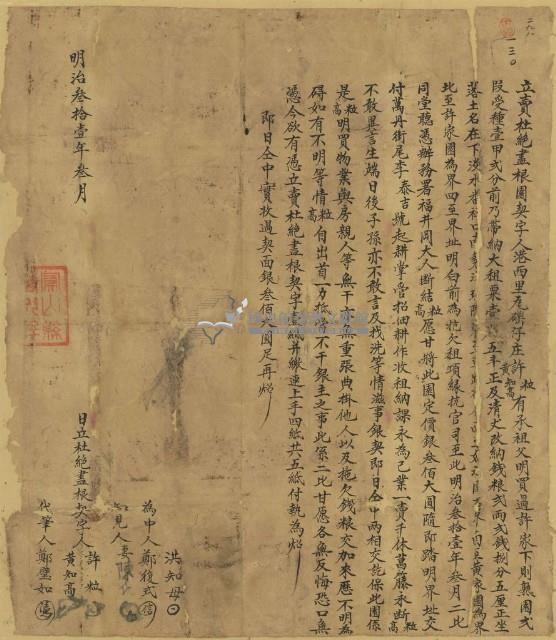 一三〇
立賣杜絕盡根園契字人港西里瓦磘仔庄許粒黃知高有承祖父明買過許家下則熟園弍
段受種壹甲弍分前乃帶納大租粟壹 五斗正及清丈改納錢粮弍兩弍錢捌分五厘正坐
落土名在下淡水 黃家園為界
北至許家園為界四至界址明白前為抗欠租項緣抗官司至此明治叁拾壹年叁月二比
同堂聽憑辦務署福井岡大人斷結粒高愿甘將此園定價銀叁佰大圓隨即踏明界址交
付萬丹街尾李泰吉號起耕掌管招佃耕作收租納課永為己業一賣千休萬藤永斷粒高
不敢異言生端日後子孫亦不敢言及找洗等情滋事銀契即日仝中兩相交訖保此園係
是粒高明買物業與房親人等無干 無重張典掛他人以及拖欠錢粮交加來歷不明為
碍如有不明等情粒高自出首一力抵 不干銀主之事此係二比甘愿各無反悔恐口無
憑今欲有憑立賣杜絕盡根契字 紙并繳連上手四紙共五紙付執為炤
即日仝中實收過契面銀叁佰大圓足再炤
洪知母
為中人鄭復
知見人妻陳
日立杜絕盡根契字人許粒
黃知高
代筆人鄭璧如
明治叁拾壹年叁月